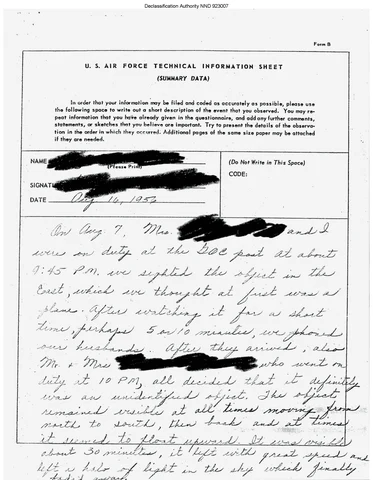 Declassification Authority NND 923007
Form B
U. S. AIR FORCE TECHNICAL INFORMATION SHEET
(SUMMARY DATA)
In order that your information may be filed and coded as accurately as possible, please use
the following space to write out a short description of the event that you observed. You may re-
peat information that you have already given in the questionnaire, and add any further comments,
statements, or sketches that you believe are important. Try to present the details of the observa-
tion in the order in which they occurred. Additional pages of the same size paper may be attached
if they are needed.
NAME
(Please Print)
SIGNAT
DATE Aug 16, 1956
(Do Not Write in This Space)
CODE:
On Aug 7, Mrs. and I
were on duty at the GOC post at about
9:45 P.M. we sighted the object in the
East, which we thought at first was a
plane. After watching it for a short
time, perhaps 5 or 10 minutes, we phoned
our husbands. After they arrived, also
Mr. & Mrs who went on
duty at 10 PM, all decided that it definitely
was an unidentified object. The object
remained visible at all times moving from
north to south, then back and at times
it seemed to float upward. It was visible
about 30 minutes, it left with great speed and
left a halo of light in the sky which finally